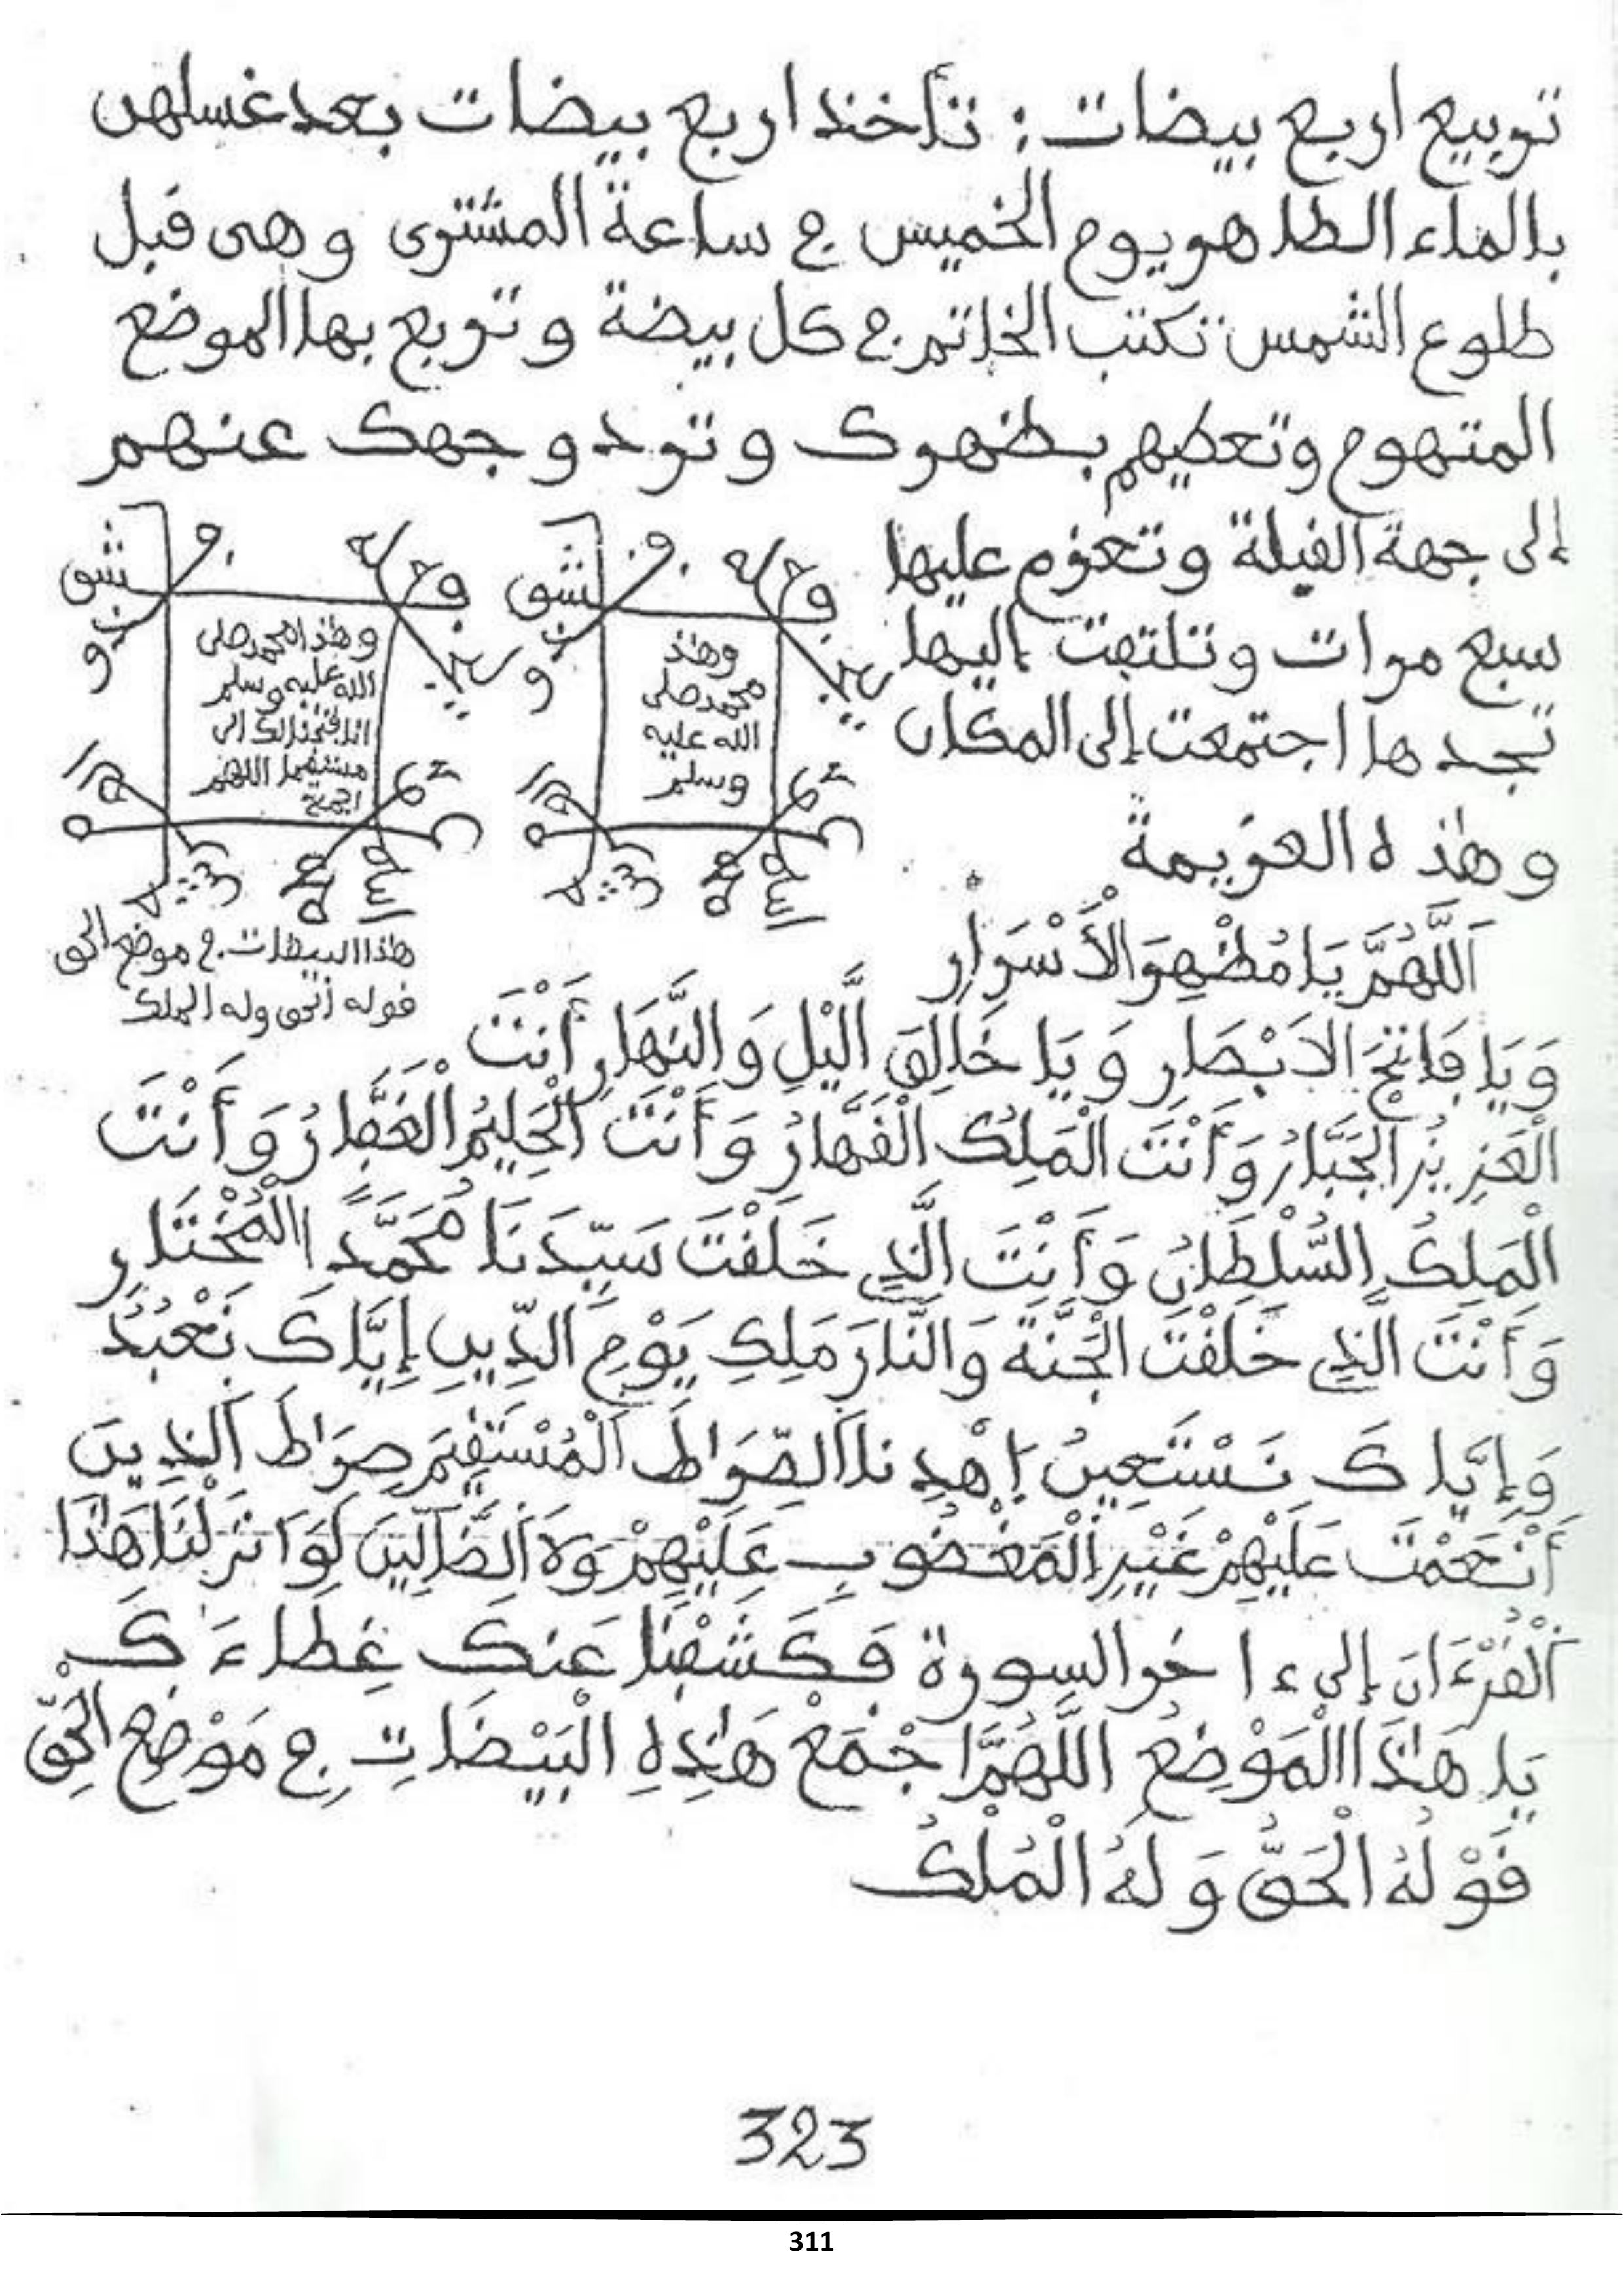 تربيع اربع بيضات : تأخذ اربع بيضات بعد غسلهن
بالماء الطاهر يوم الخميس في ساعة المشترى وهى قبل
طلوع الشمس تكتب الخاتم في كل بيضة وتربع بها الموضع
المتهوم وتعطيهم بظهرك وترد وجهك عنهم
إلى جهة القبلة وتعزم عليها
سبع مرات وتلتفت إليها
تجدها اجتمعت إلى المكان
وهذه العزيمة
شق
و
وهذا محمد صلى
الله عليه وسلم
مستقيما اللهم
شق
و
وهذ
محمد صلى
الله عليه
وسلم
هذا البيضات في موضع الحق
قوله الحق وله الملك
اَللَّهُمَّ يَا مُظْهِرَ الْأَسْرَارِ
وَيَا فَاتِحَ الاَبْصَارِ وَيَا خَالِقَ الَّيْلِ وَالنَّهَارِ أَنْتَ
الْعَزِيزُ الْجَبَّارُ وَأَنْتَ الْمَلِكُ الْقَهَّارُ وَأَنْتَ الْحَلِيمُ الْغَفَّارُ وَأَنْتَ
الْمَلِكُ السُّلْطَانُ وَأَنْتَ الَّذِي خَلَقْتَ سَيِّدَنَا مُحَمَّدًا الْمُخْتَارِ
وَأَنْتَ الَّذِي خَلَقْتَ الْجَنَّةَ وَالنَّارَ مَلِكِ يَوْمِ الدِّينِ إِيَّاكَ نَعْبُدُ
وَإِيَّاكَ نَسْتَعِينُ إِهْدِنَا الصِّرَاطَ الْمُسْتَقِيمَ صِرَاطَ الَّذِينَ
أَنْعَمْتَ عَلَيْهِمْ غَيْرِ الْمَغْضُوبِ عَلَيْهِمْ وَلَا الضَّالِّينَ لَوَ انْزَلْنَا هَٰذَا
الْقُرْءَانَ إِلى ءاخر السورة فَكَشَفْنَا عَنكَ غِطَاءَكَ
يَا هَٰذَا الْمَوْضِعُ اللَّهُمَّ اجْمَعْ هَٰذِهِ الْبَيْضَاتِ فِي مَوْضِعِ الْحَقِّ
قَوْلُهُ الْحَقُّ وَلَهُ الْمُلْكُ
323
311